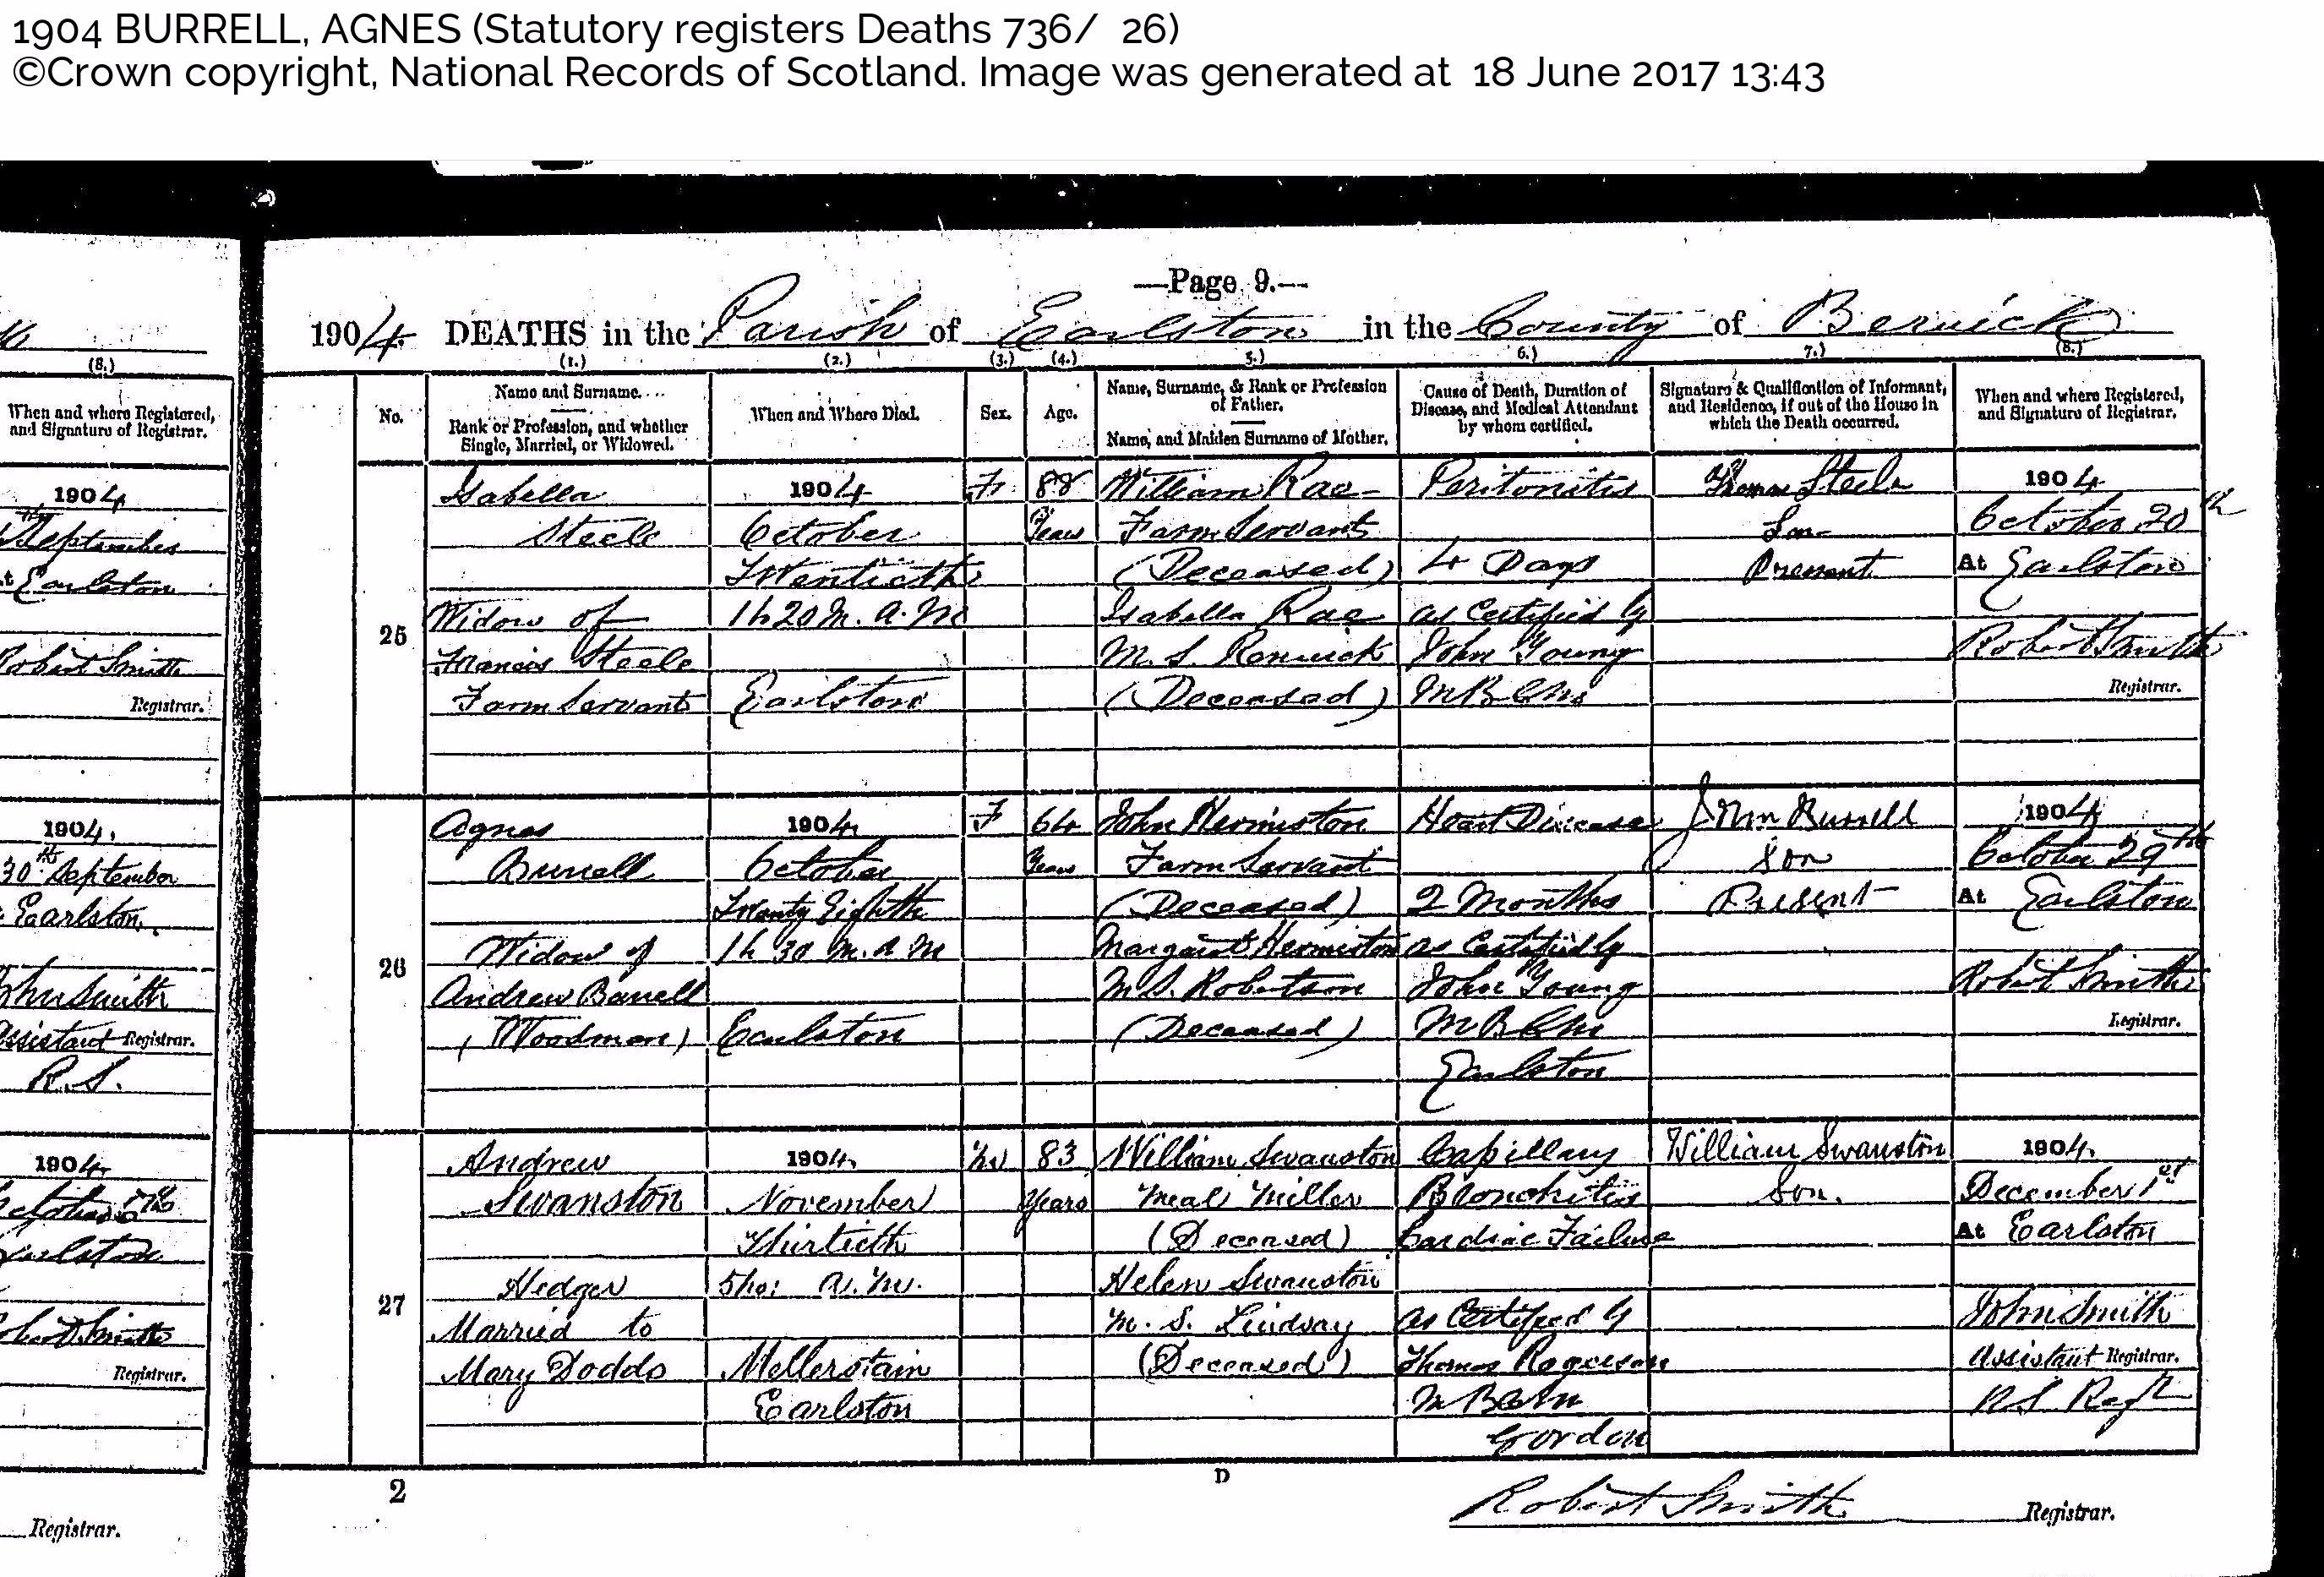 1904 BURRELL, AGNES (Statutory registers Deaths 736/ 26)
©Crown copyright, National Records of Scotland. Image was generated at 18 June 2017 13:43
(8.)
When and where Registered,
and Signature of Registrar.
1904
September
Earlston
Robert Smith
Registrar.
1904.
30th September
Earlston.
John Smith
Assistant Registrar.
R.S.
1904.
Earlston
Registrar.
Registrar.
—Page 9.—
1904 DEATHS in the Parish of Earlston in the County of Berwick
(1.) (2.) (3.) (4.) 5.) 6.) 7.) (8.)
No.
Name and Surname.
Rank or Profession, and whether
Single, Married, or Widowed.
When and Where Died.
Sex.
Age.
Name, Surname, & Rank or Profession
of Father.
Name, and Maiden Surname of Mother.
Cause of Death, Duration of
Disease, and Medical Attendant
by whom certified.
Signature & Qualification of Informant,
and Residence, if out of the House in
which the Death occurred.
When and where Registered,
and Signature of Registrar.
25
Isabella
Steele
Widow of
Francis Steele
Farm Servant
1904
October
Twentieth
1h 20 M. A.M
Earlston
F
88
Years
William Rae
Farm Servant
(Deceased)
Isabella Rae
M.S. Renwick
(Deceased)
Peritonitis
4 Days
as Certified by
John Young
M B C M
Thomas Steele
Son
Present
1904
October 20th
At Earlston
Robert Smith
Registrar.
26
Agnes
Burrell
Widow of
Andrew Burrell
(Woodman)
1904
October
Twenty Eighth
1h 30 M. A M
Earlston
F
64
Years
John Hermiston
Farm Servant
(Deceased)
Margaret Hermiston
M.S. Robertson
(Deceased)
Heart Disease
2 Months
as Certified by
John Young
M B C M
Earlston
John Burrell
Son
Present
1904
October 29th
At Earlston
Robert Smith
Registrar.
27
Andrew
Swanston
Hedger
Married to
Mary Dodds
1904.
November
Thirtieth
5ho: A.M.
Mellerstain
Earlston
M
83
Years
William Swanston
Meal Miller
(Deceased)
Helen Swanston
M.S. Lindsay
(Deceased)
Capillary
Bronchitis
Cardiac Failure
as Certified by
Thomas
M B C M
Gordon
William Swanston
Son.
1904.
December 1st
At Earlston
John Smith
Assistant Registrar.
R S Regr
2
D
Robert Smith Registrar.